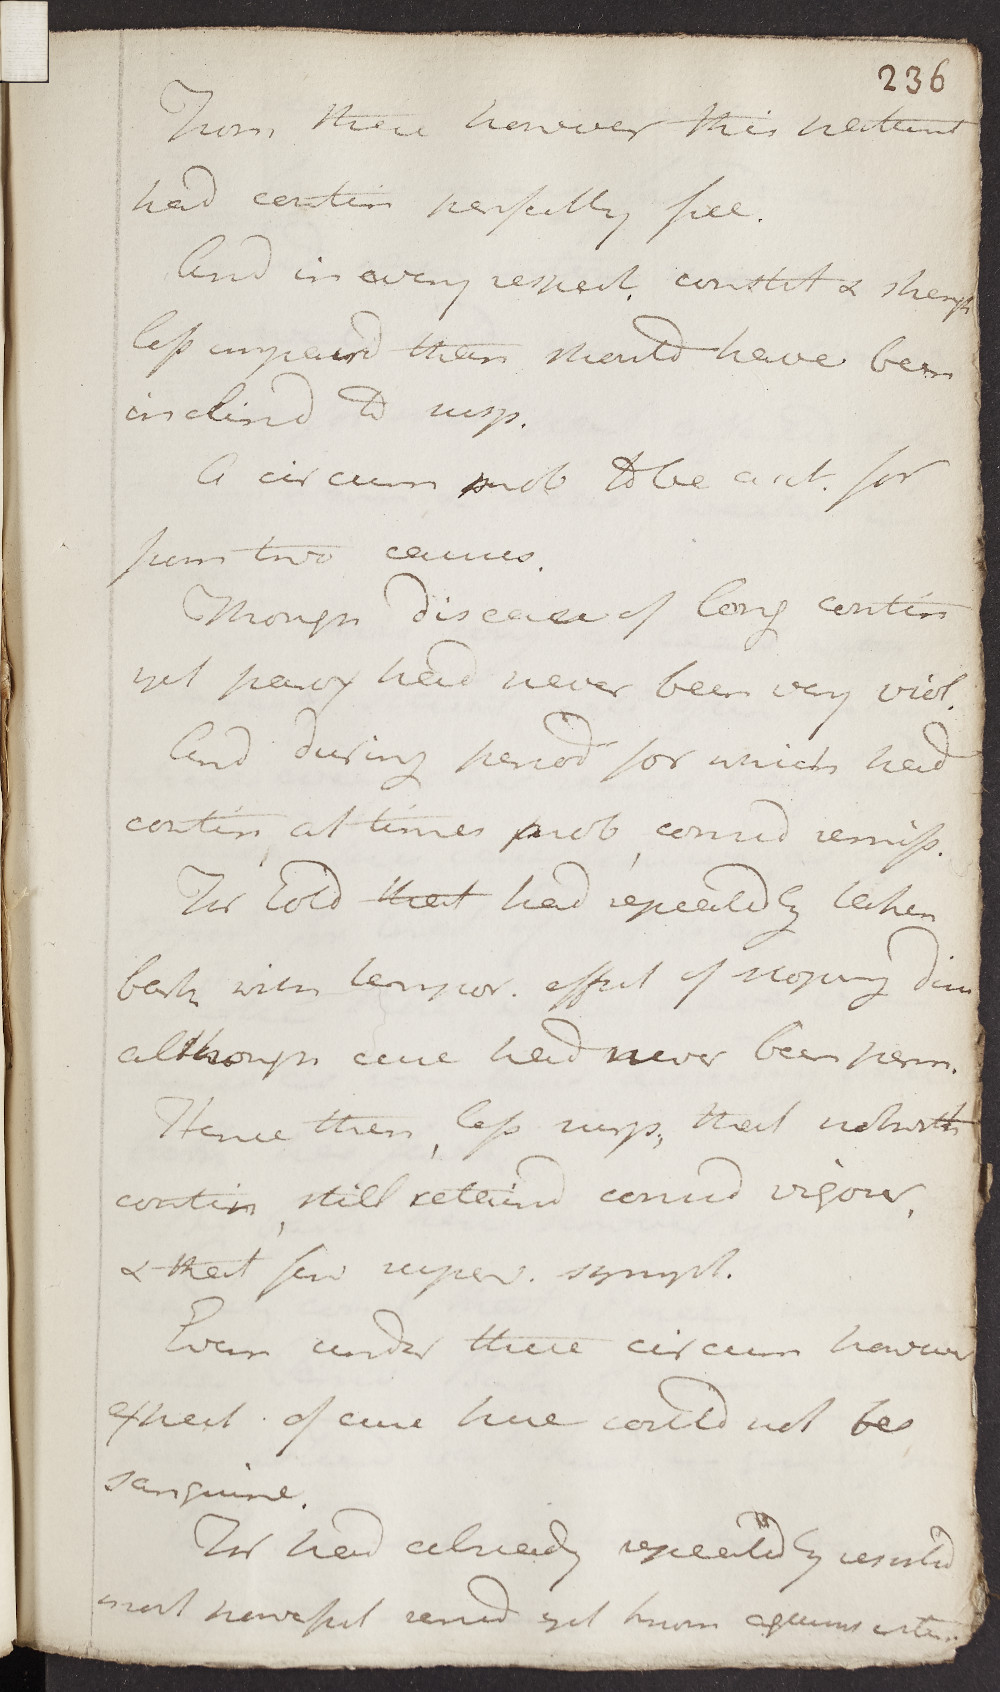 236
From these however this patient
had contin perfectly free.
And in every respect, constit & streng
less impaird than should have been
inclind to susp.
A circum prob to be acct. for
from two causes.
Though disease of long contin
yet parox had never been very viol.
And during period for which had
contin, at times prob, consid remiss.
For told that had repeatedly taken
bark with tempor. effect of stoping dis
although cure had never been perm.
Hence then, less surp, that notwith
contin, still retaind consid vigour,
& that few super. sympt.
Even under these circum however
expect. of cure here could not be
sanguine.
For had already repeatedly resisted
most powerful remed yet known against inter.